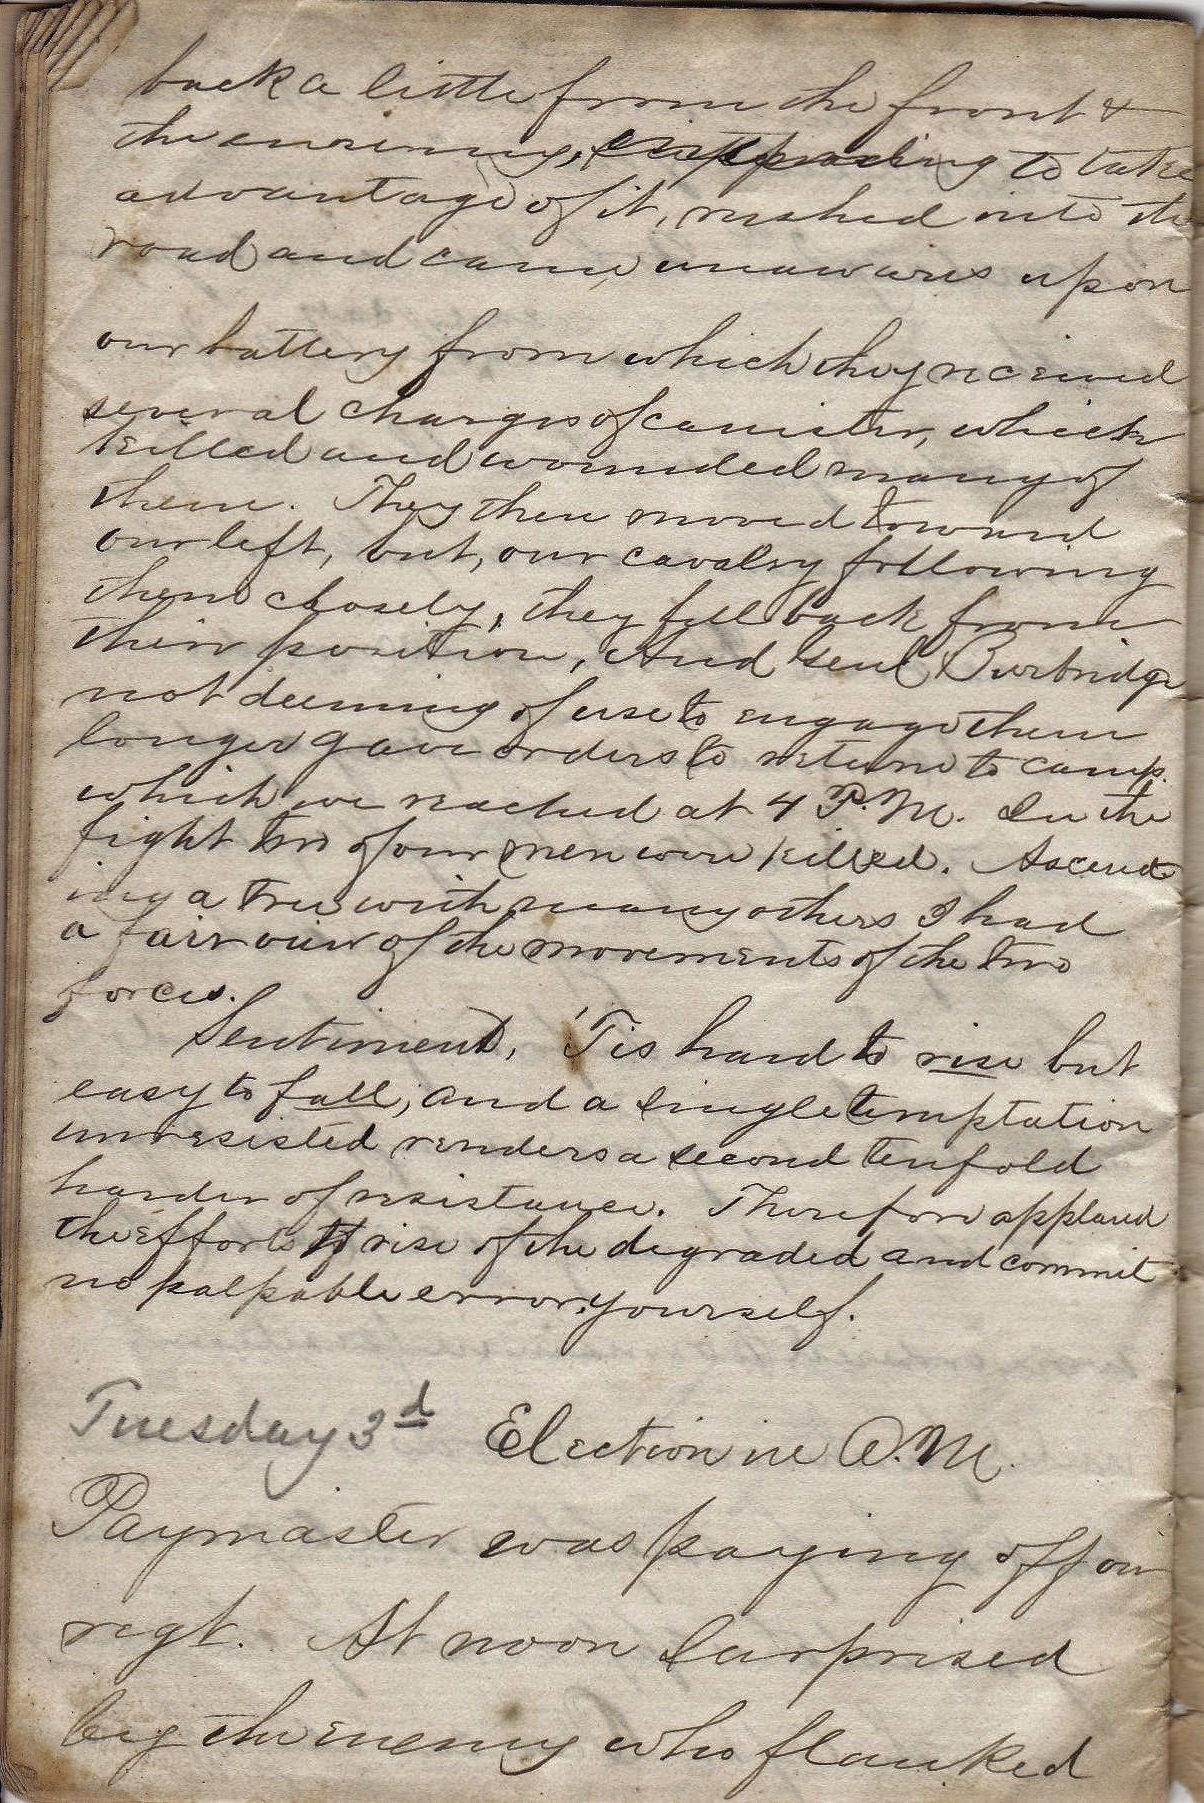 back a little from the front &
the enemy, expecting to take
advantage of it, rushed into the
road and came unawares upon
our battery from which they received
several charges of canister, which
killed and wounded many of
them. They then moved toward
our left, but, our cavalry following
them closely, they fell back from
their position, And Genl Burbridge
not deeming of use to engage them
longer gave orders to return to camp.
which we reached at 4 P.M. In the
fight two of our men were killed. Ascend-
ing a tree with many others I had
a fair view of the movements of the two
forces.
Sentiment, 'Tis hard to rise but
easy to fall, and a single temptation
unresisted renders a second tenfold
harder of resistance. Therefore applaud
the effort to rise of the degraded and commit
no palpable error, yourself.
Tuesday 3d Election in A.M.
Paymaster was paying off our
regt. At noon surprised
by the enemy who flanked